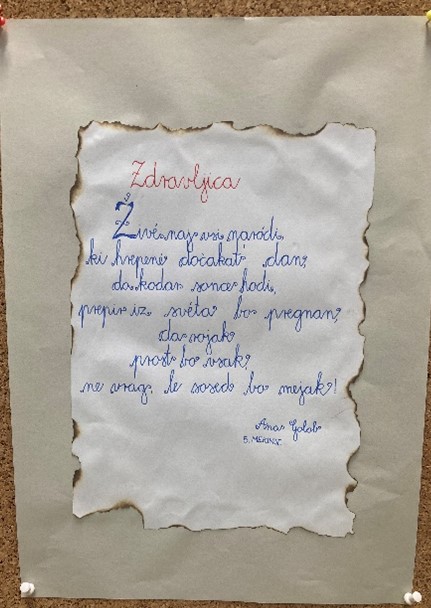 Zdravljica
Živé naj vsi naródi,
ki hrepené dočakat' dan,
da koder sonce hodi,
prepir iz svéta bo pregnan,
da rojak
prost bo vsak,
ne vrag, le sosed bo mejak!
Ana Golob